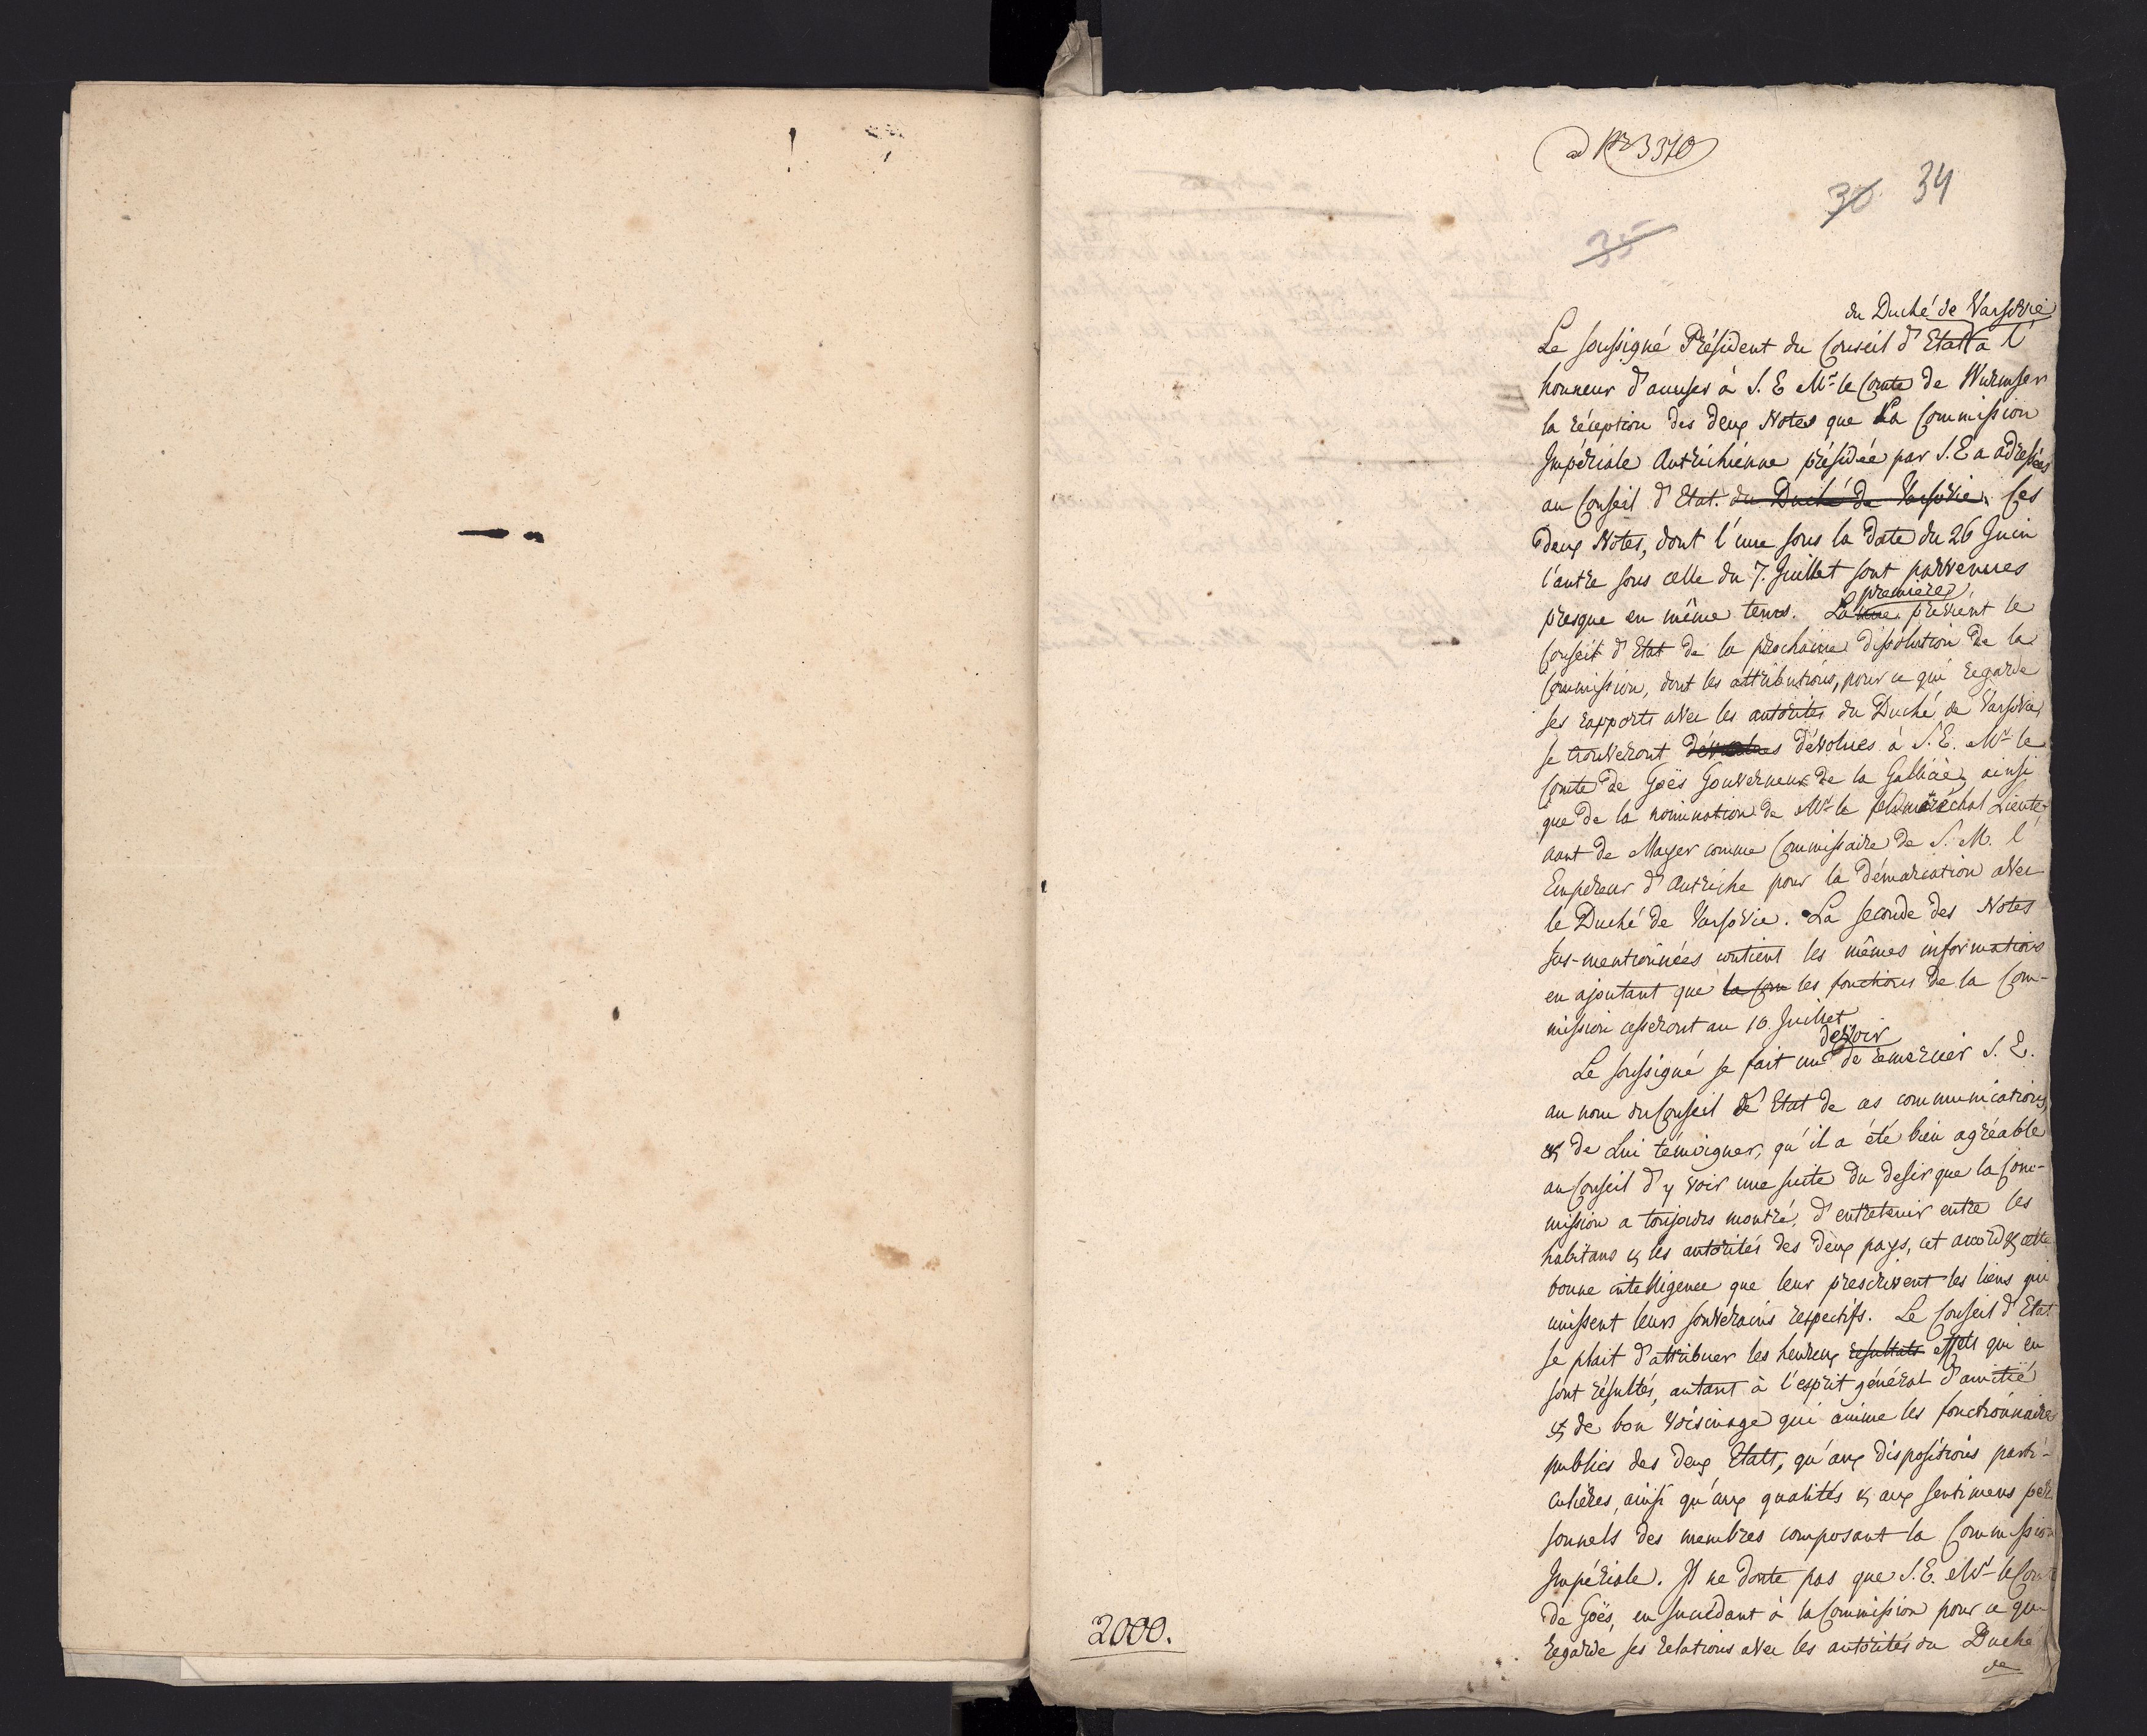 ad Nro 3370
30 34
35
du Duché de Varsovie
Le soussigné Président du Conseil d'Etat a l'
honneur d'accuser à S. E Mr le Comte de Wurmser
la réception des deux Notes que la Commission
Impériale Autrichienne présidée par S. E a adressées
au Conseil d'Etat. du Duché de Varsovie. Ces
deux Notes, dont l'une sous la date du 26 Juin
l'autre sous celle du 7. Juillet sont parvenues
premiere
presque en même tems. La une prévient le
Conseil d'Etat de la prochaine dissolution de la
Commission, dont les attributions, pour ce qui regarde
ses rapports avec les autorités du Duché de Varsovie,
se trouveront dévolues à S. E. Mr le
Comte de Goës Gouverneur de la Gallicie, ainsi
que de la nomination de Mr le feldmaréchal Lieute-
nant de Mayer comme Commissaire de S. M. l'
Empereur d'Autriche pour la démarcation avec
le Duché de Varsovie. La seconde des Notes
sus-mentionnées contient les mêmes informations
en ajoutant que la Com les fonctions de la Com-
mission cesseront au 10. Juillet
devoir
Le soussigné se fait un de remercier S. E.
au nom du Conseil d'Etat de ces communications,
& de Lui témoigner, qu'il a été bien agréable
au Conseil d'y voir une suite du desir que la Com-
mission a toujours montré, d'entretenir entre les
habitans & les autorités des deux pays, cet accord & cette
bonne intelligence que leur prescrivent les liens qui
unissent leurs souverains respectifs. Le Conseil d'Etat
se plait d'attribuer les heureux resultats effets qui en
sont résultés, autant à l'esprit général d'amitié
& de bon voisinage qui anime les fonctionnaires
publics des deux Etats, qu'aux dispositions parti-
culières, ainsi qu'aux qualités & aux sentimens per
sonnels des membres composant la Commission
Impériale. Il ne doute pas que S. E. Mr le Comte
de Goës, en succédant à la Commission pour ce qui
regarde ses relations avec les autorités du Duché
de
2000.